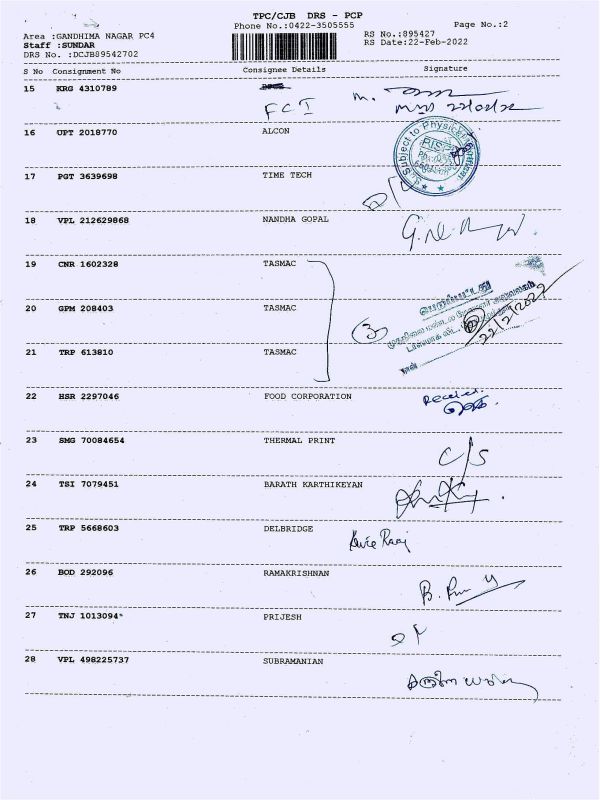 TPC/CJB DRS - PCP
Phone No.:0422-3505555
Page No.:2
Area :GANDHIMA NAGAR PC4
Staff :SUNDAR
DRS No. :DCJB89542702
RS No.:895427
RS Date:22-Feb-2022
S No Consignment No Consignee Details Signature
15 KRG 4310789
FCI
16 UPT 2018770 ALCON
17 PGT 3639698 TIME TECH
18 VPL 212629868 NANDHA GOPAL
19 CNR 1602328 TASMAC
20 GPM 208403 TASMAC
3
22/2/2022
21 TRP 613810 TASMAC
22 HSR 2297046 FOOD CORPORATION
Received.
23 SMG 70084654 THERMAL PRINT
C/S
24 TSI 7079451 BARATH KARTHIKEYAN
25 TRP 5668603 DELBRIDGE
26 BOD 292096 RAMAKRISHNAN
27 TNJ 1013094* PRIJESH
28 VPL 498225737 SUBRAMANIAN